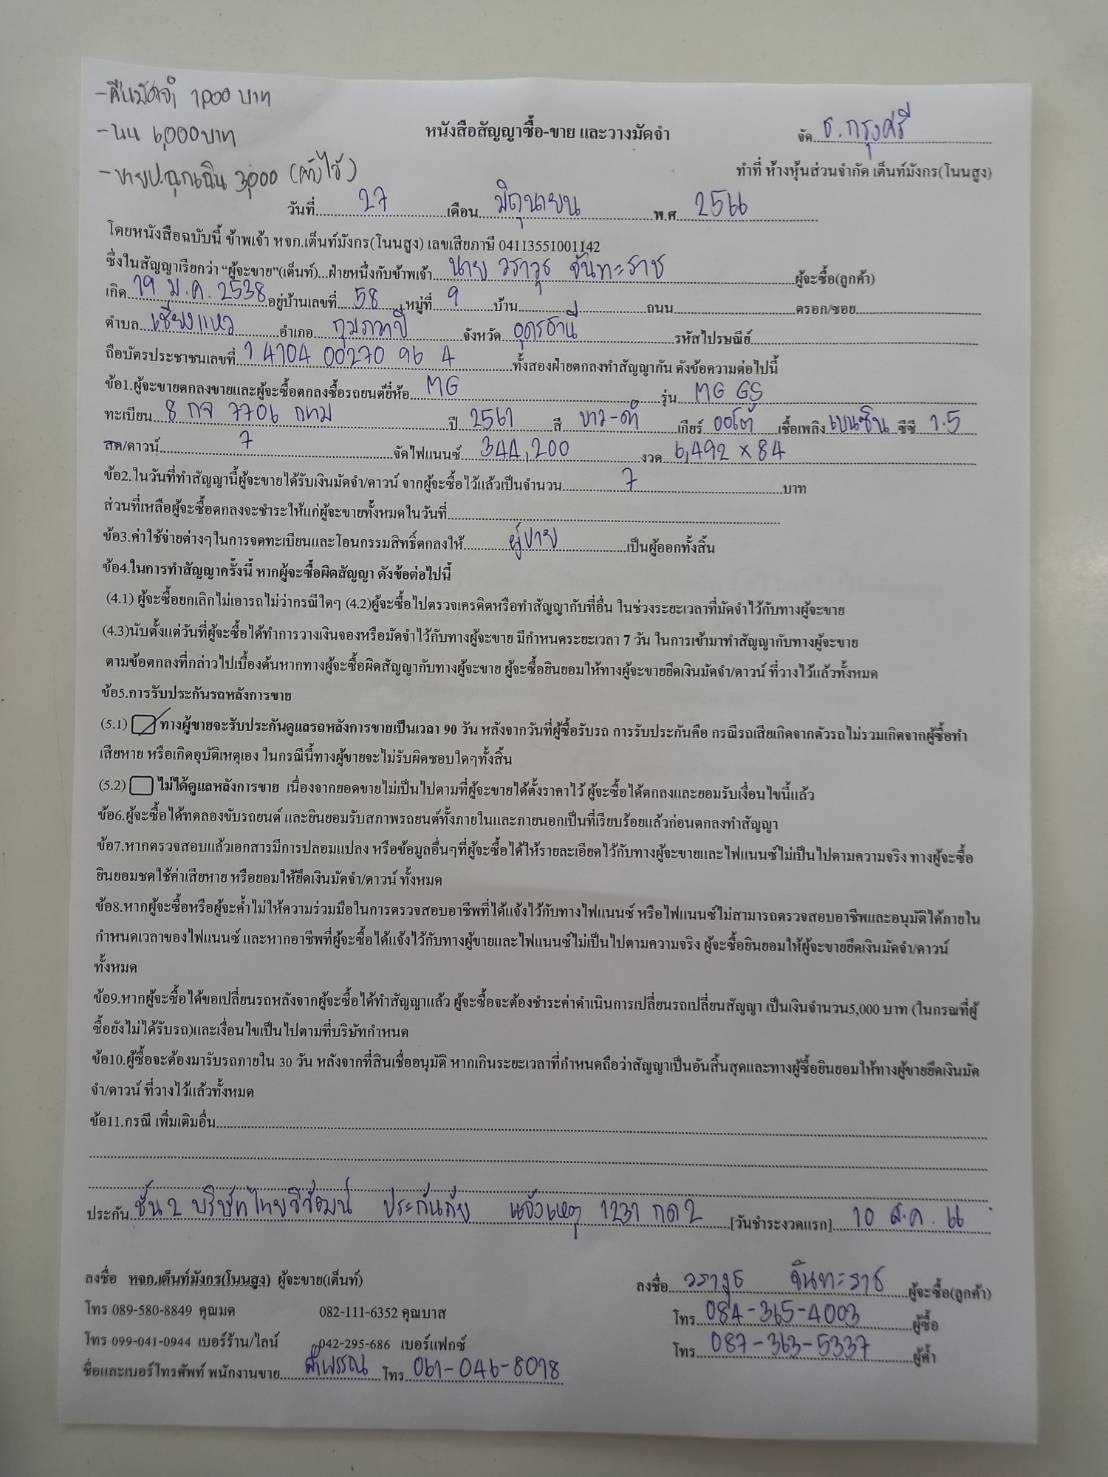 -คืนมัดจำ 1,000 บาท
-นน 6,000 บาท
-ขายป.ฉุกเฉิน 3,000
หนังสือสัญญาซื้อ-ขาย และวางมัดจำ
จัด ธ.กรุงศรี
ทำที่ ห้างหุ้นส่วนจำกัด เต็นท์มังกร(โนนสูง)
วันที่ 27 เดือน มิถุนายน พ.ศ 2566
โดยหนังสือฉบับนี้ ข้าพเจ้า หจก.เต็นท์มังกร(โนนสูง) เลขเสียภาษี 04113551001142
ซึ่งในสัญญาเรียกว่า "ผู้จะขาย"(เต็นท์)...ฝ่ายหนึ่งกับข้าพเจ้า นาย วราวุธ จันทะราช ผู้จะซื้อ(ลูกค้า)
เกิด 19 ม.ค. 2538 อยู่บ้านเลขที่ 58 หมู่ที่ 9 บ้าน ถนน ตรอก/ซอย
ตำบล เชียงแหว อำเภอ กุมภวาปี จังหวัด อุดรธานี รหัสไปรษณีย์
ถือบัตรประชาชนเลขที่ 1 4104 00270 96 4 ทั้งสองฝ่ายตกลงทำสัญญากัน ดังข้อความต่อไปนี้
ข้อ1.ผู้จะขายตกลงขายและผู้จะซื้อตกลงซื้อรถยนต์ยี่ห้อ MG รุ่น MG GS
ทะเบียน 8 กจ 7706 กทม ปี 2561 สี ขาว-ดำ เกียร์ ออโต้ เชื้อเพลิง เบนซิน ซีซี 1.5
สด/ดาวน์ 7 จัดไฟแนนซ์ 344,200 งวด 6,492 x 84
ข้อ2.ในวันที่ทำสัญญานี้ผู้จะขายได้รับเงินมัดจำ/ดาวน์ จากผู้จะซื้อไว้แล้วเป็นจำนวน 7 บาท
ส่วนที่เหลือผู้จะซื้อตกลงจะชำระให้แก่ผู้จะขายทั้งหมดในวันที่
ข้อ3.ค่าใช้จ่ายต่างๆในการจดทะเบียนและโอนกรรมสิทธิ์ตกลงให้ ผู้ขาย เป็นผู้ออกทั้งสิ้น
ข้อ4.ในการทำสัญญาครั้งนี้ หากผู้จะซื้อผิดสัญญา ดังข้อต่อไปนี้
(4.1) ผู้จะซื้อยกเลิกไม่เอารถไม่ว่ากรณีใดๆ (4.2)ผู้จะซื้อไปตรวจเครดิตหรือทำสัญญากับที่อื่น ในช่วงระยะเวลาที่มัดจำไว้กับทางผู้จะขาย
(4.3)นับตั้งแต่วันที่ผู้จะซื้อได้ทำการวางเงินจองหรือมัดจำไว้กับทางผู้จะขาย มีกำหนดระยะเวลา 7 วัน ในการเข้ามาทำสัญญากับทางผู้จะขาย
ตามข้อตกลงที่กล่าวไปเบื้องต้นหากทางผู้จะซื้อผิดสัญญากับทางผู้จะขาย ผู้จะซื้อยินยอมให้ทางผู้จะขายยึดเงินมัดจำ/ดาวน์ ที่วางไว้แล้วทั้งหมด
ข้อ5.การรับประกันรถหลังการขาย
(5.1) ทางผู้ขายจะรับประกันดูแลรถหลังการขายเป็นเวลา 90 วัน หลังจากวันที่ผู้ซื้อรับรถ การรับประกันคือ กรณีรถเสียเกิดจากตัวรถไม่รวมเกิดจากผู้ซื้อทำ
เสียหาย หรือเกิดอุบัติเหตุเอง ในกรณีนี้ทางผู้ขายจะไม่รับผิดชอบใดๆทั้งสิ้น
(5.2) ไม่ได้ดูแลหลังการขาย เนื่องจากยอดขายไม่เป็นไปตามที่ผู้จะขายได้ตั้งราคาไว้ ผู้จะซื้อได้ตกลงและยอมรับเงื่อนไขนี้แล้ว
ข้อ6.ผู้จะซื้อได้ทดลองขับรถยนต์ และยินยอมรับสภาพรถยนต์ทั้งภายในและภายนอกเป็นที่เรียบร้อยแล้วก่อนตกลงทำสัญญา
ข้อ7.หากตรวจสอบแล้วเอกสารมีการปลอมแปลง หรือข้อมูลอื่นๆที่ผู้จะซื้อได้ให้รายละเอียดไว้กับทางผู้จะขายและไฟแนนซ์ไม่เป็นไปตามความจริง ทางผู้จะซื้อ
ยินยอมชดใช้ค่าเสียหาย หรือยอมให้ยึดเงินมัดจำ/ดาวน์ ทั้งหมด
ข้อ8.หากผู้จะซื้อหรือผู้จะค้ำไม่ให้ความร่วมมือในการตรวจสอบอาชีพที่ได้แจ้งไว้กับทางไฟแนนซ์ หรือไฟแนนซ์ไม่สามารถตรวจสอบอาชีพและอนุมัติได้ภายใน
กำหนดเวลาของไฟแนนซ์ และหากอาชีพที่ผู้จะซื้อได้แจ้งไว้กับทางผู้ขายและไฟแนนซ์ไม่เป็นไปตามความจริง ผู้จะซื้อยินยอมให้ผู้จะขายยึดเงินมัดจำ/ดาวน์
ทั้งหมด
ข้อ9.หากผู้จะซื้อได้ขอเปลี่ยนรถหลังจากผู้จะซื้อได้ทำสัญญาแล้ว ผู้จะซื้อจะต้องชำระค่าดำเนินการเปลี่ยนรถเปลี่ยนสัญญา เป็นเงินจำนวน5,000 บาท (ในกรณที่ผู้
ซื้อยังไม่ได้รับรถ)และเงื่อนไขเป็นไปตามที่บริษัทกำหนด
ข้อ10.ผู้ซื้อจะต้องมารับรถภายใน 30 วัน หลังจากที่สินเชื่ออนุมัติ หากเกินระยะเวลาที่กำหนดถือว่าสัญญาเป็นอันสิ้นสุดและทางผู้ซื้อยินยอมให้ทางผู้ขายยึดเงินมัด
จำ/ดาวน์ ที่วางไว้แล้วทั้งหมด
ข้อ11.กรณี เพิ่มเติมอื่น
ประกัน ชั้น 2 บริษัทไทยวิวัฒน์ ประกันภัย แจ้งเหตุ 1231 กด 2 [วันชำระงวดแรก] 10 ส.ค. 66
ลงชื่อ หจก.เต็นท์มังกร(โนนสูง) ผู้จะขาย(เต็นท์)
ลงชื่อ วราวุธ จันทะราช ผู้จะซื้อ(ลูกค้า)
โทร 089-580-8849 คุณมด 082-111-6352 คุณบาส
โทร 084-365-4003 ผู้ซื้อ
โทร 099-041-0944 เบอร์ร้าน/ไลน์ 042-295-686 เบอร์แฟกซ์
โทร 087-363-5337 ผู้ค้ำ
ชื่อและเบอร์โทรศัพท์ พนักงานขาย โทร 061-046-8098